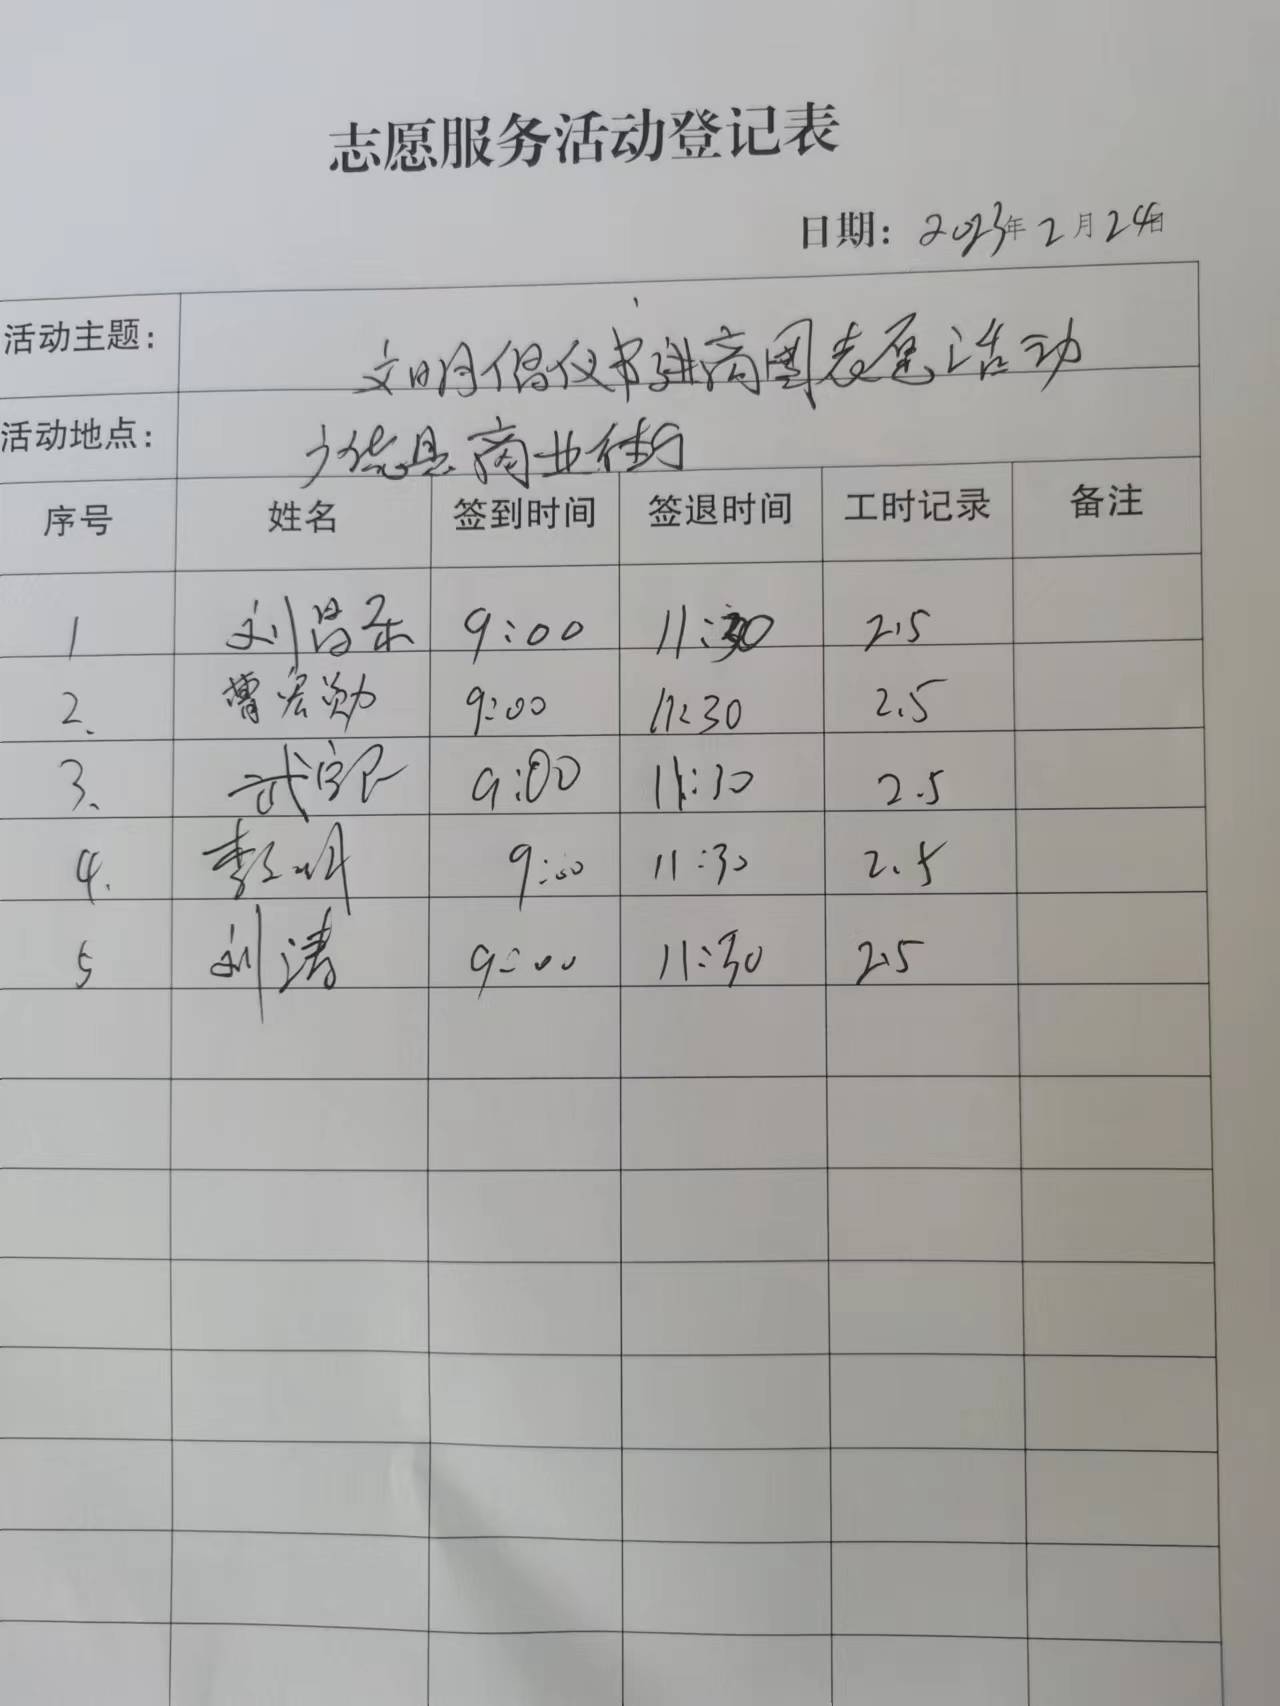 志愿服务活动登记表
日期：2023年2月24日
活动主题：文明倡仪书进商圈志愿活动
活动地点：县商业街
序号 姓名 签到时间 签退时间 工时记录 备注
1 刘昌乐 9:00 11:30 2.5
2、曹宏勋 9:00 11:30 2.5
3、武 9:00 11:30 2.5
4、李 9:00 11:30 2.5
5 刘涛 9:00 11:30 2.5